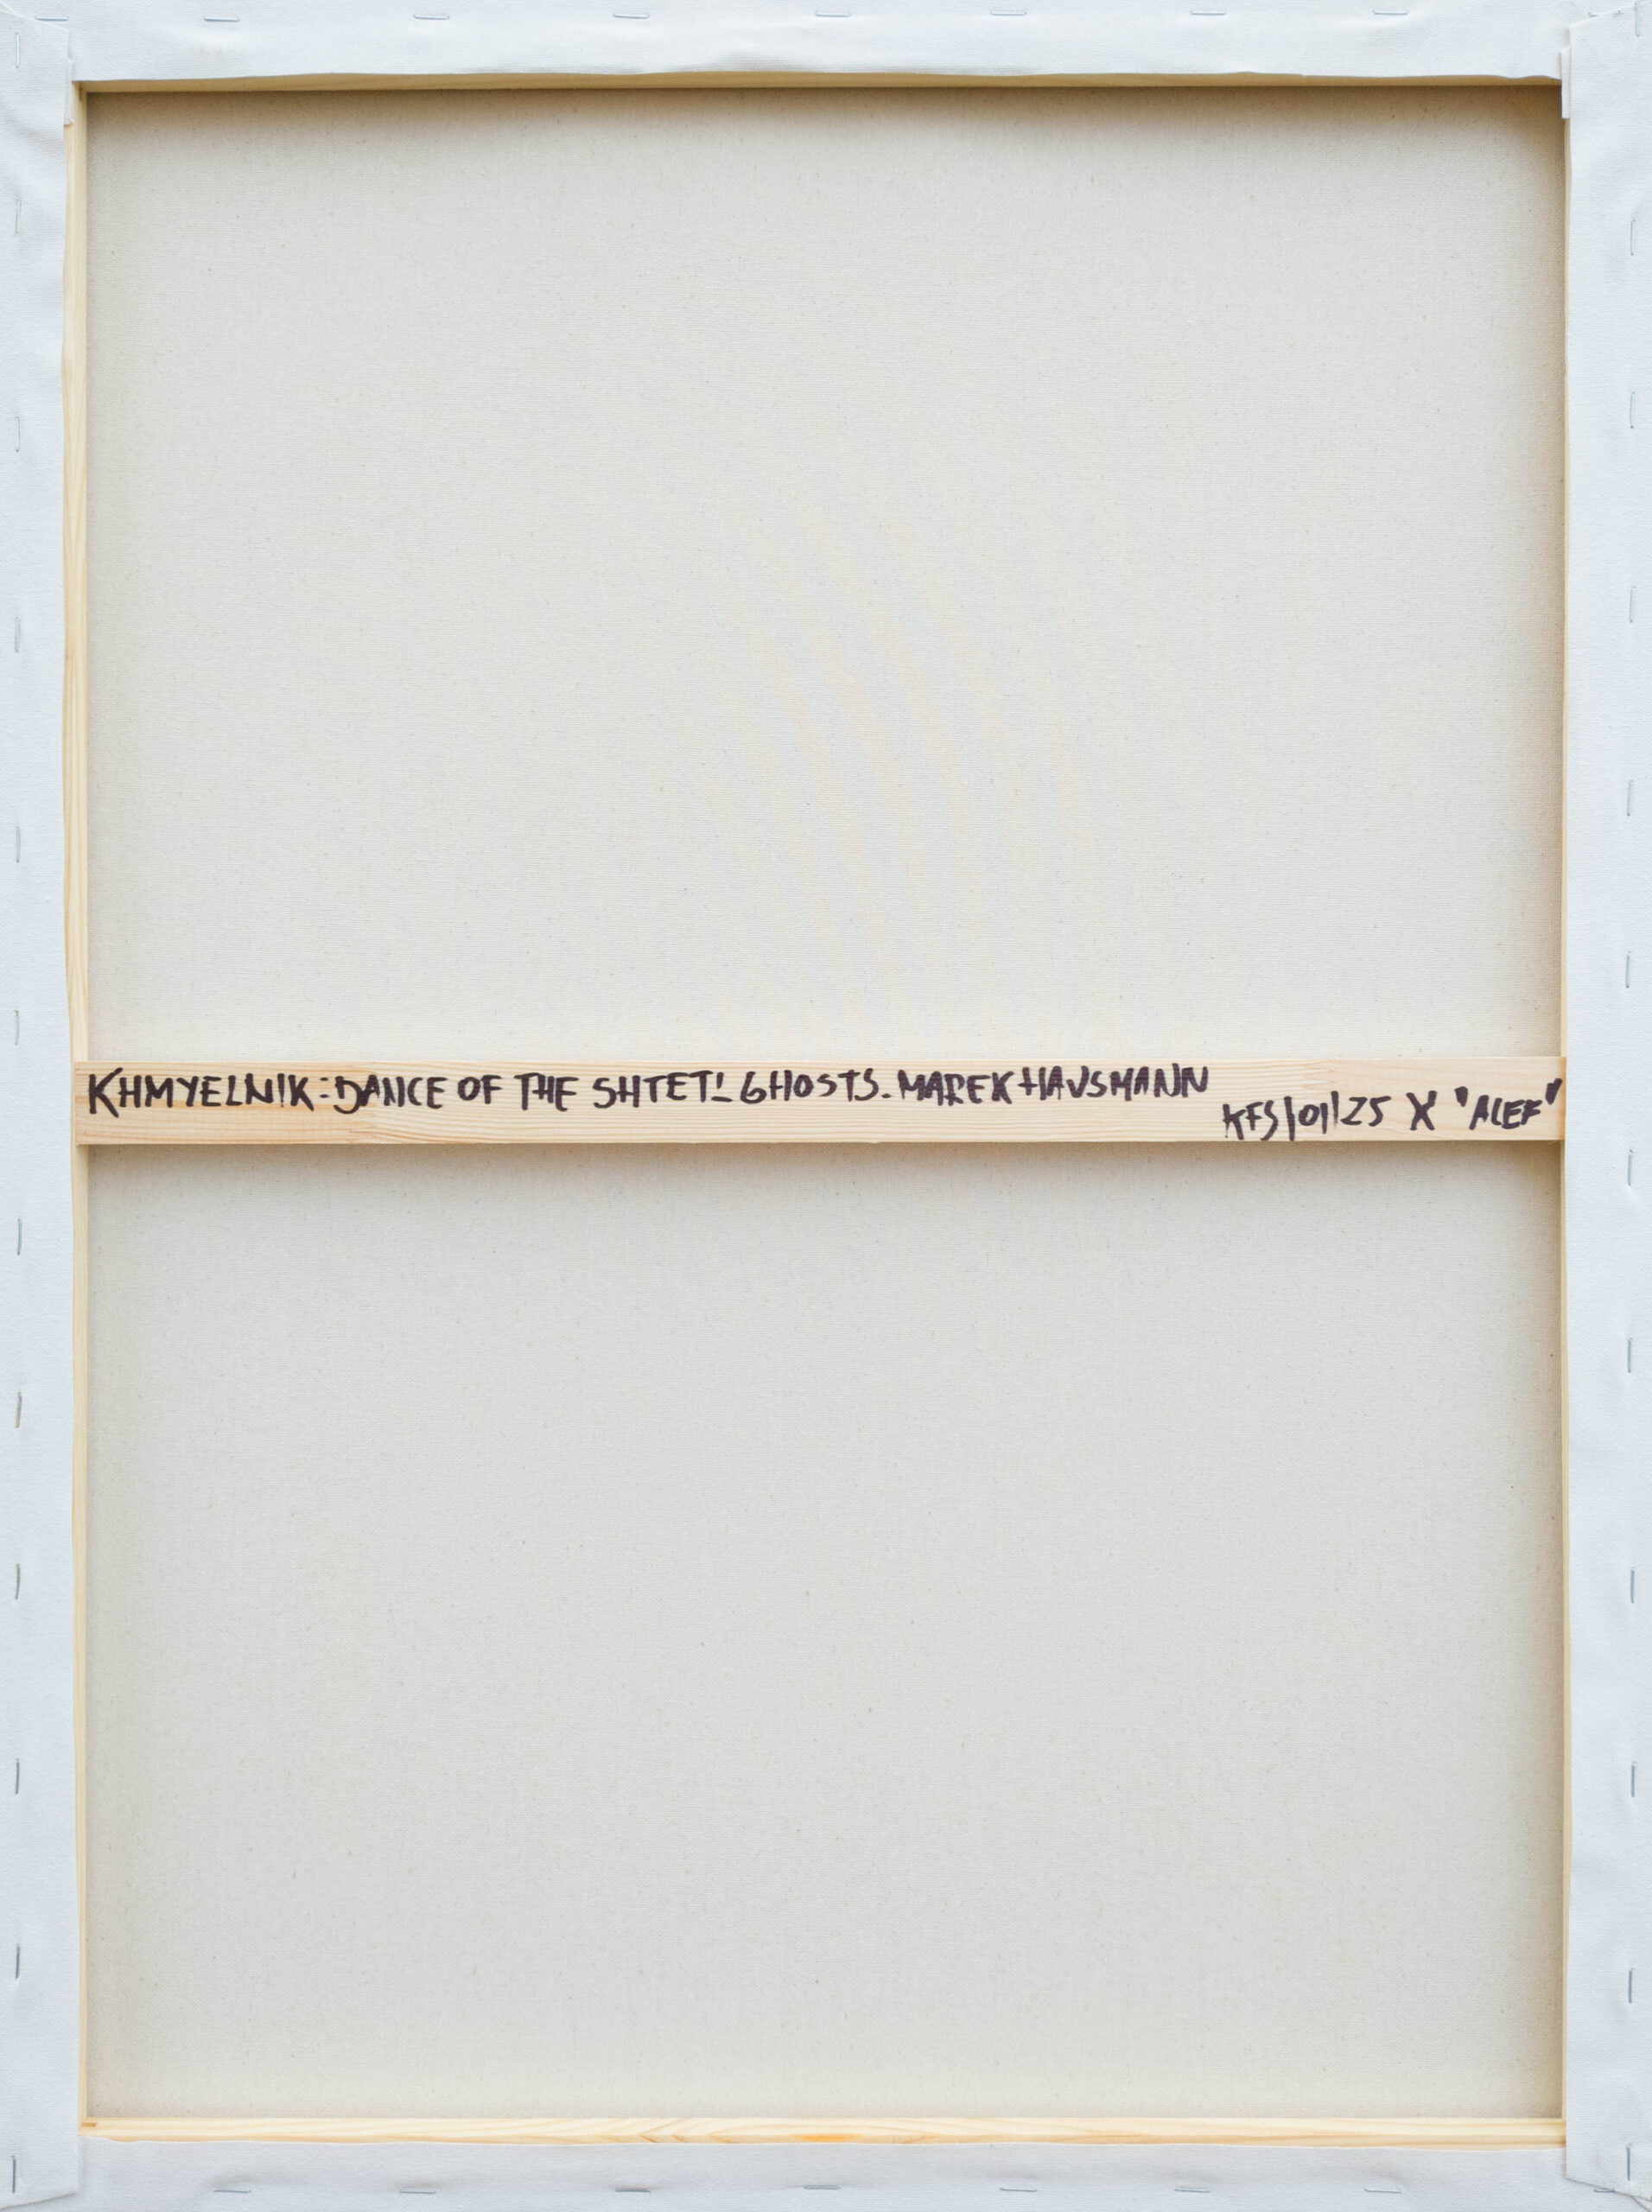 KHMYELNIK: DANCE OF THE SHTETL GHOSTS. MAREK HAUSMANN
KFS/01/25 X "ALEF"